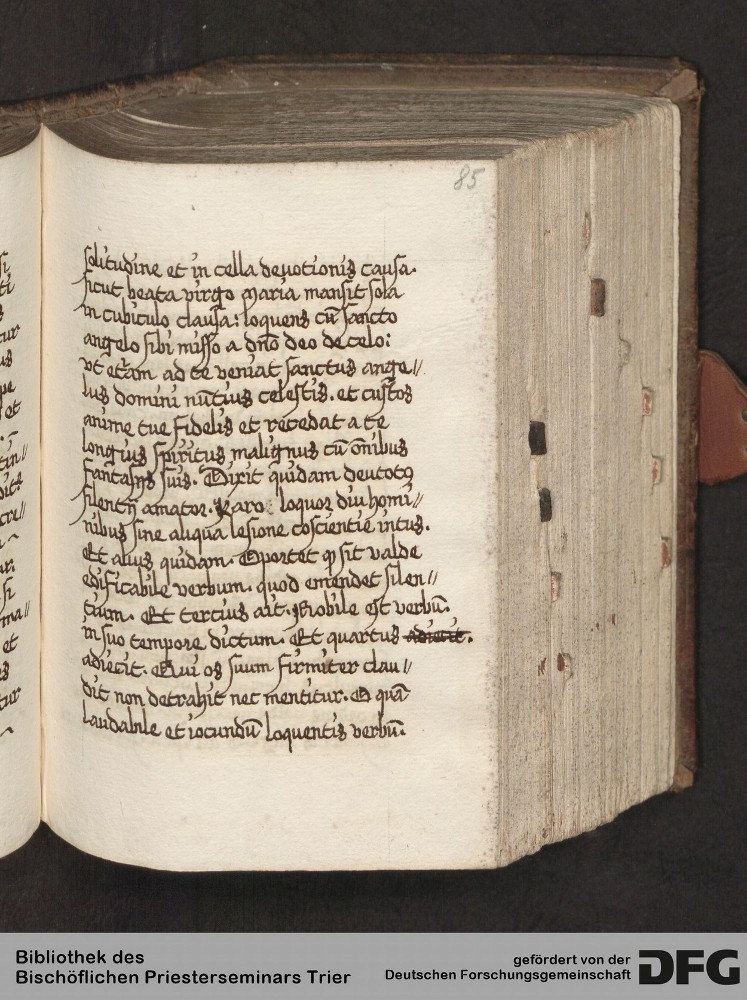 85
solitudine et in cella deuotionis causa.
sicut beata virgo maria mansit sola
in cubiculo clausa: loquens cū sancto
angelo sibi misso a dn̄o deo de celo:
vt etiam ad te veniat sanctus ange//
lus domini nūtius celestis. et custos
anime tue fidelis et recedat a te
longius spiritus malignus cū ōnibus
fantasijs suis. Dixit quidam deuotꝯ
silentij amator. Raro loquor diu homi//
nibus sine aliqua lesione cōscientie intus.
Et alius quidam. Oportet ꝙ sit valde
edificabile verbum. quod emendet silen//
tium. Et tercius ait. Nobile est verbū.
in suo tempore dictum. Et quartus adiecit.
adiecit. Qui os suum firmiter clau//
dit non detrahit nec mentitur. O quā
laudabile et iocundū loquentis verbū.
si
ti
s
tur
us
et
tin//
cre//
si
ma//
et
tur
Bibliothek des
Bischöflichen Priesterseminars Trier
gefördert von der
Deutschen Forschungsgemeinschaft
DFG